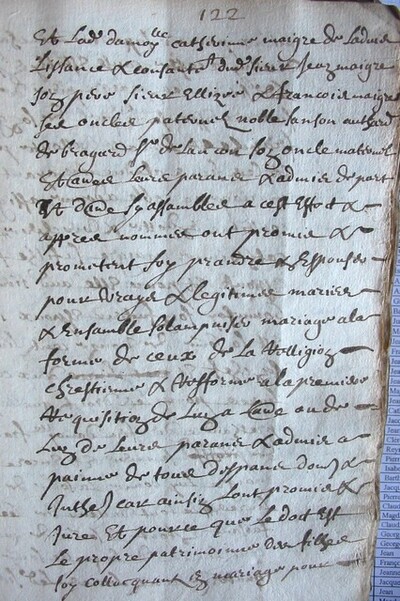 122
Et lad. damoy.lle catherinne maigre de ladvis
licence & consante.t dud. sieur Jean maigre
son pere sieurs Ellizee & francois maigre
ses oncles paternels noble sanson
de s.r de son oncle maternel
Et autres leurs parans & admis de part
Et dautre sy assambles a cest effect &
appres nommes ont promis &
prometent soy prandre & Espouser
pour vrays & legitimes maries
& Ensamble solampniser mariage a la
forme de ceux de la Relligion
chrestienne & Refforme a la premiere
Requisition de lung a lautre ou de
lung de leurs parans & admis a
painne de tous despans dom.s &
Inthe.s car ainsin lont promis &
Jure Et pource que le dot Est
le propre patrimoinne des filhes
soy collocquant en mariage pour